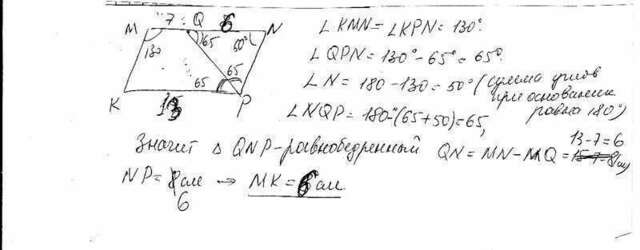 M 7 Q 6 N
∠KMN = ∠KPN = 130°.
130 65 60°
∠QPN = 130° - 65° = 65°.
65 65
K 13 P
∠N = 180 - 130 = 50° (сумма углов при основании равна 180°)
∠NQP = 180° - (65 + 50) = 65,
13 - 7 = 6
Значит Δ QNP - равнобедренный QN = MN - MQ = 15 - 7 = 8 см
NP = 8 см → MK = 6 см
6